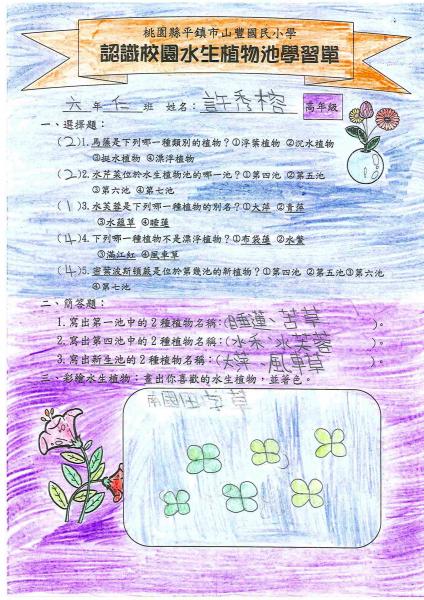 桃園縣平鎮市山豐國民小學
認識校園水生植物池學習單
六年仁班 姓名：許秀榕 高年級
一、選擇題：
(2)1.馬藻是下列哪一種類別的植物？①浮葉植物 ②沉水植物
③挺水植物 ④漂浮植物
(2)2.水芹菜位於水生植物池的哪一池？①第四池 ②第五池
③第六池 ④第七池
(1)3.水芙蓉是下列哪一種植物的別名？①大萍 ②青萍
③水蘊草 ④睡蓮
(4)4.下列哪一種植物不是漂浮植物？①布袋蓮 ②水鱉
③滿江紅 ④風車草
(4)5.密葉波斯頓蕨是位於第幾池的新植物？①第四池 ②第五池③第六池
④第七池
二、簡答題：
1.寫出第一池中的2種植物名稱：(睡蓮、苦草)。
2.寫出第四池中的2種植物名稱：(水禾、水芙蓉)。
3.寫出新生池的2種植物名稱：(大萍、風車草)。
三、彩繪水生植物：畫出你喜歡的水生植物，並著色。
南國田字草